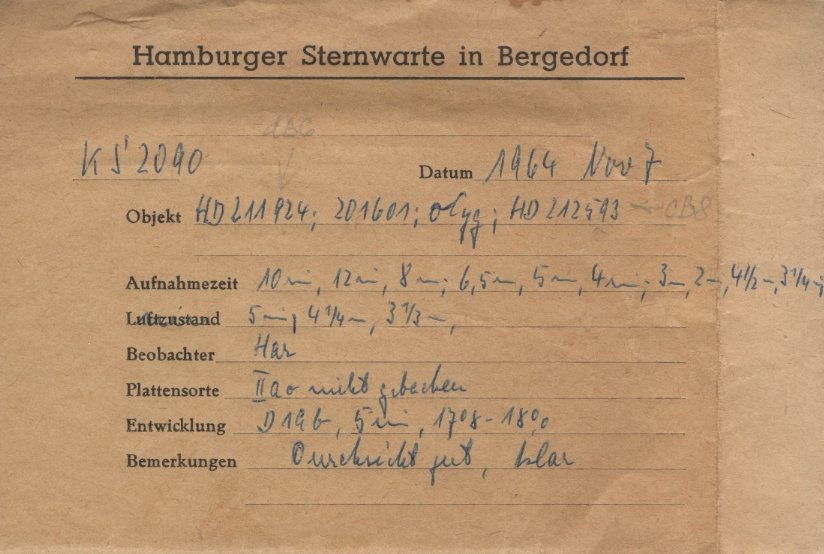 Hamburger Sternwarte in Bergedorf
KS 2090
Datum 1964 Nov 7
Objekt HD 211924; 201601; α Cyg; HD 212593 ← CB8
Aufnahmezeit 10 min, 12 min, 8 min; 6,5 m, 5 m, 4 min; 3 m, 2 m, 4 1/2 m, 3 1/4 m;
Luftzustand 5 min, 4 1/4 m, 3 1/3 m,
Beobachter Har
Plattensorte IIao nicht gebacken
Entwicklung D19b, 5 min, 17°8 - 18°,0
Bemerkungen Durchsicht gut, klar